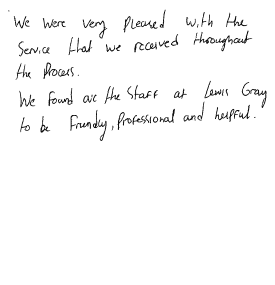 We were very pleased with the
service that we received throughout
the process.
We found all the staff at Lewis Gray
to be friendly, professional and helpful.